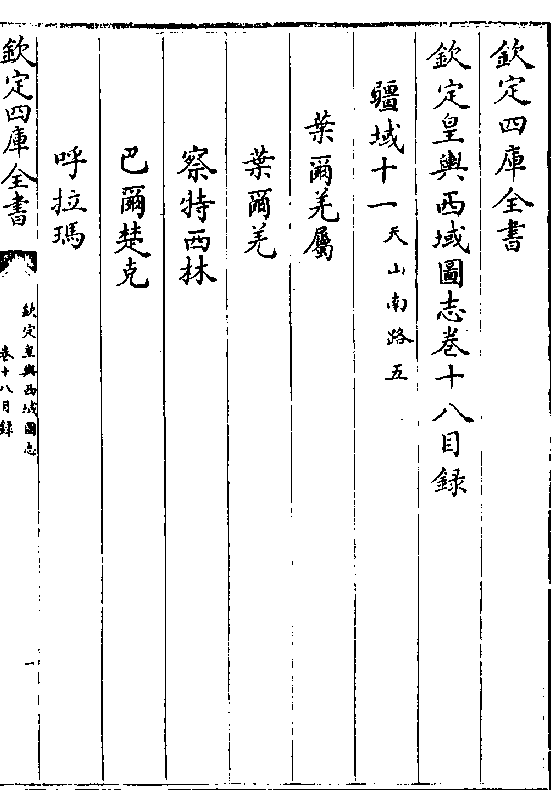 欽定四庫全書
欽定皇輿西域圖志卷十八目録
疆域十一天山南路五
葉爾羌屬
葉爾羌
察特西林
巴爾楚克
呼拉瑪
欽定四庫全書
欽定皇輿西域圖志
卷十八目録
一